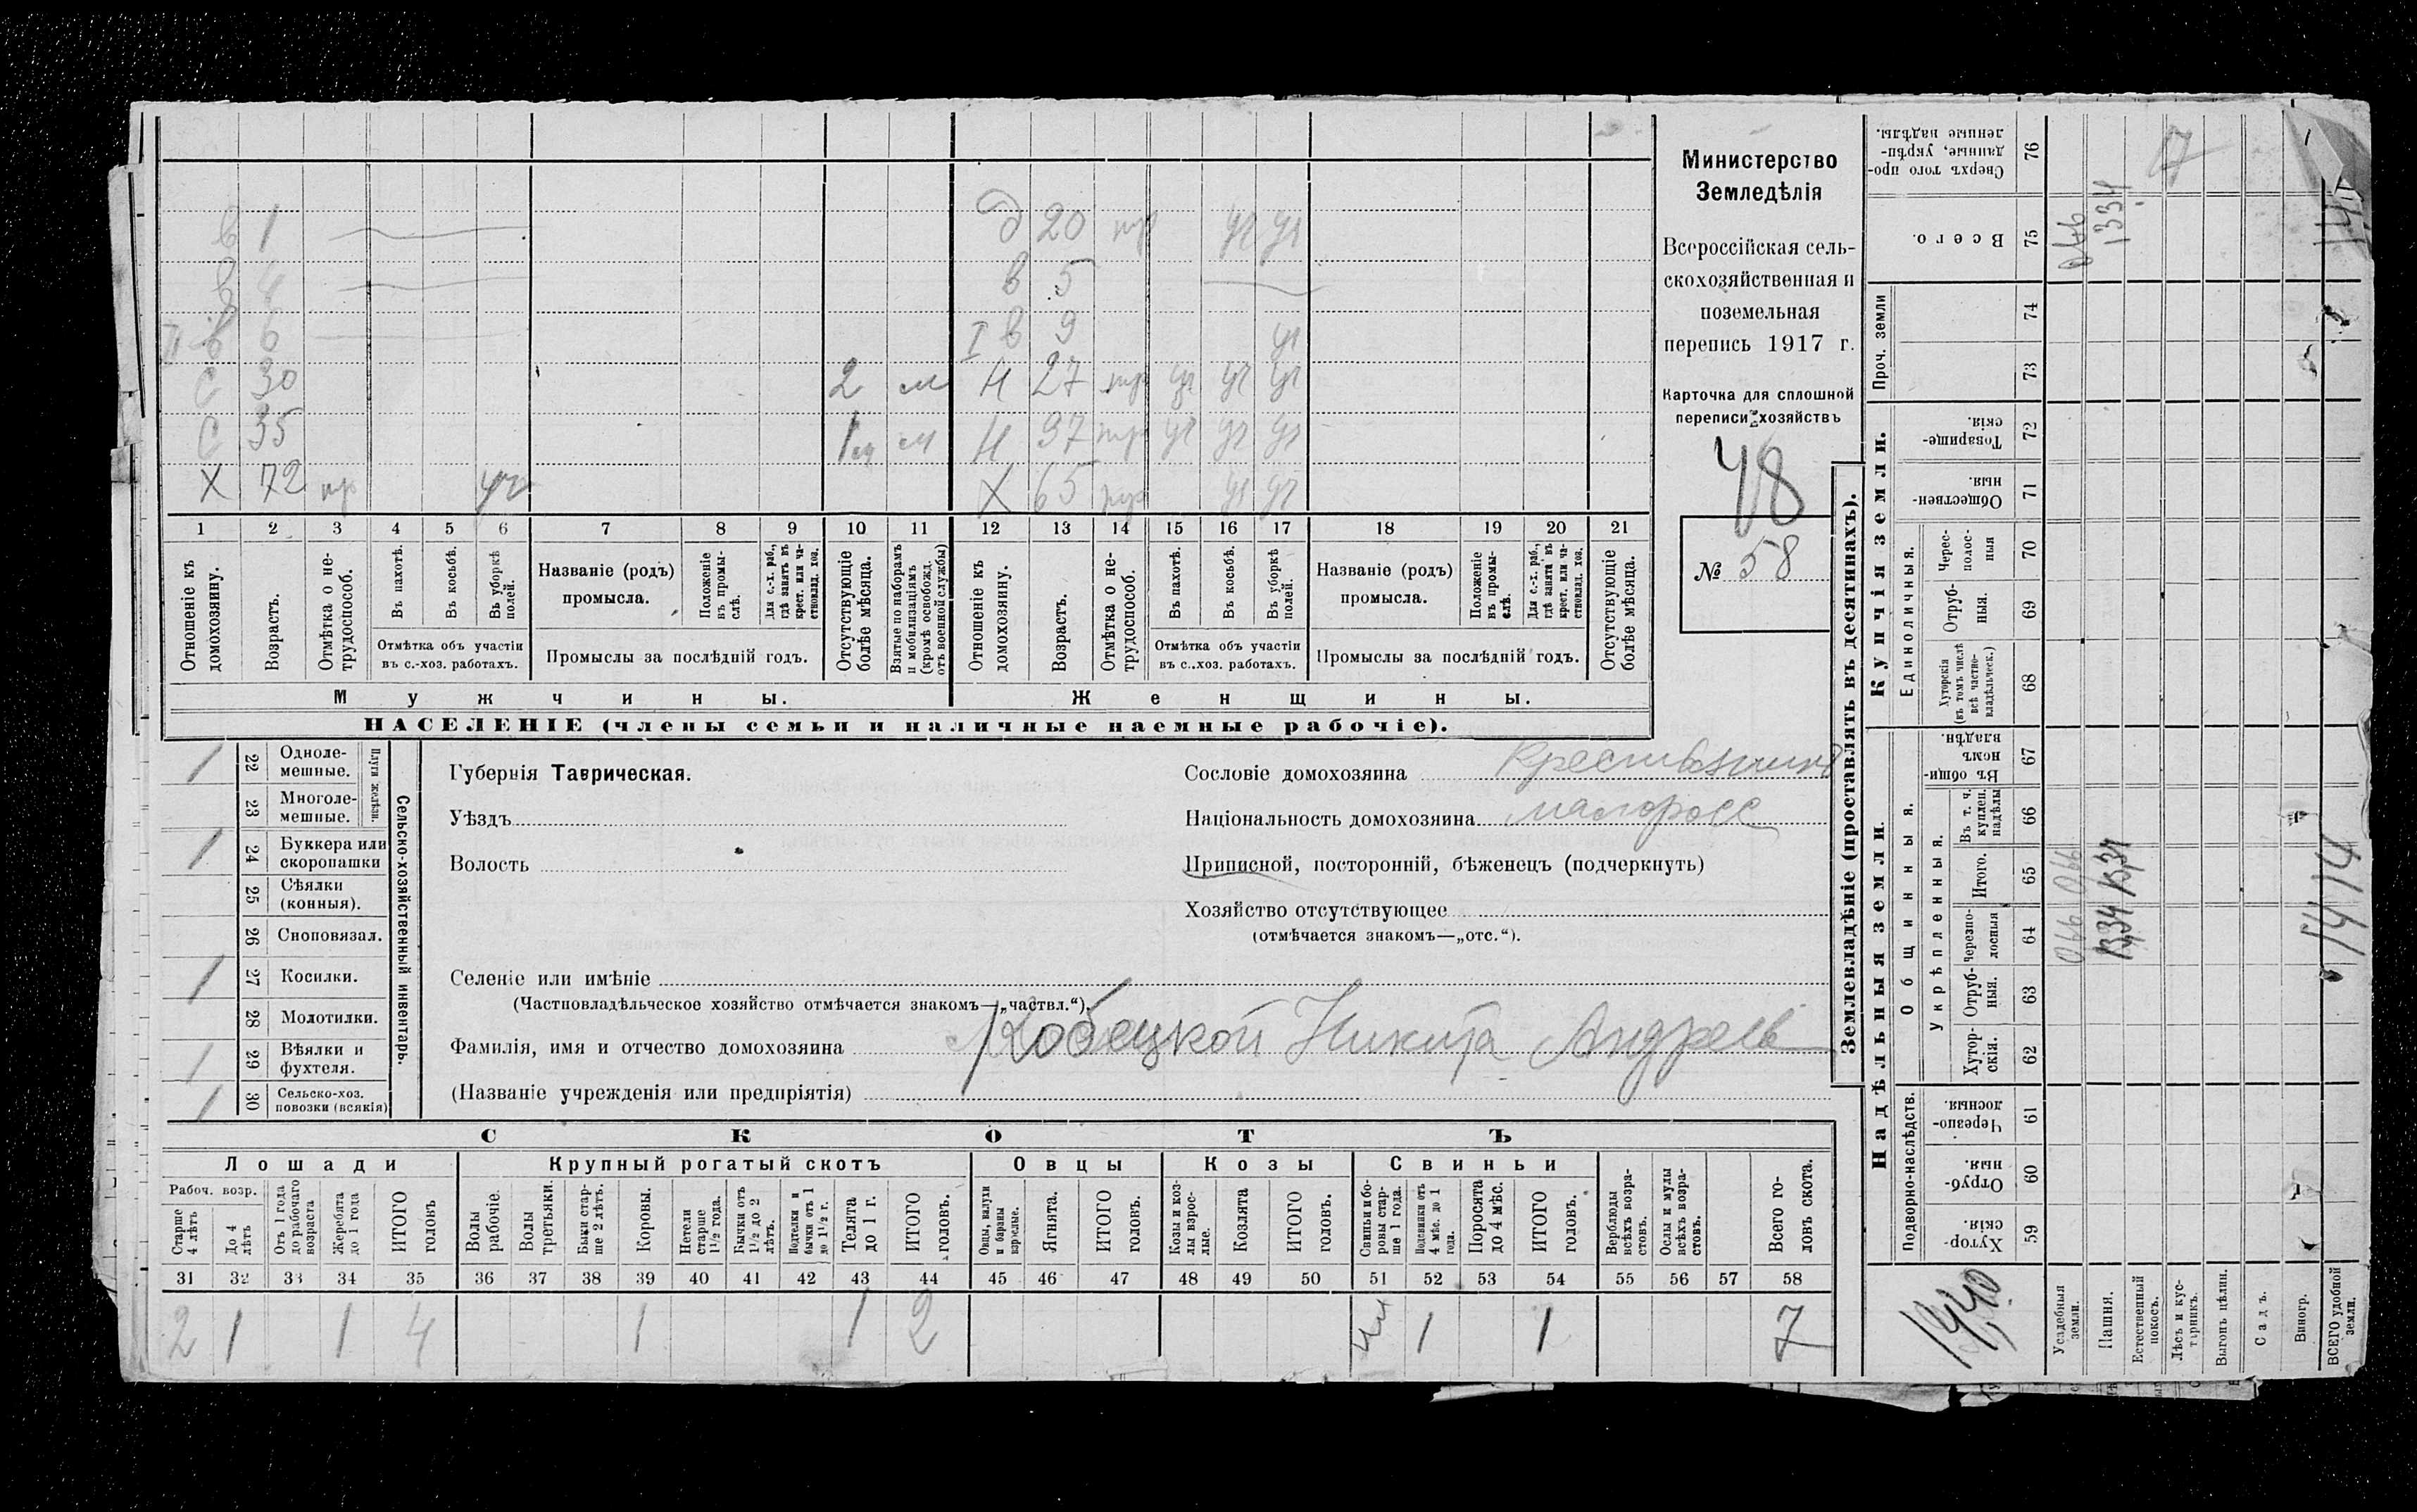 в 1 д 20 нр уч уч
в 4 в 5
II в 6 I в 9 уч
С 30 2 м Н 27 нр уч уч уч
С 35 1 м Н 37 нр уч уч уч
Х 72 нр уч Х 65 нр уч уч
1 2 3 4 5 6 7 8 9 10 11 12 13 14 15 16 17 18 19 20 21
Отношеніе къ домохозяину.
Возрастъ.
Отмѣтка о не-трудоспособ.
Въ пахотѣ.
Въ косьбѣ.
Въ уборкѣ полей.
Отмѣтка объ участіи въ с.-хоз. работахъ.
Названіе (родъ) промысла.
Положеніе въ промы-слѣ.
Для с.-х. раб., гдѣ занятъ въ крест. или ча-стновлад. хоз.
Промыслы за послѣдній годъ.
Отсутствующіе болѣе мѣсяца.
Взятые по наборамъ и мобилизаціямъ (кромѣ освобожд. отъ военной службы)
Отношеніе къ домохозяину.
Возрастъ.
Отмѣтка о не-трудоспособ.
Въ пахотѣ.
Въ косьбѣ.
Въ уборкѣ полей.
Отмѣтка объ участіи въ с.-хоз. работахъ.
Названіе (родъ) промысла.
Положеніе въ промы-слѣ.
Для с.-х. раб., гдѣ занята въ крест. или ча-стновлад. хоз.
Промыслы за послѣдній годъ.
Отсутствующіе болѣе мѣсяца.
Мужчины. Женщины.
НАСЕЛЕНІЕ (члены семьи и наличные наемные рабочіе).
Министерство
Земледѣлія
Всероссійская сель-
скохозяйственная и
поземельная
перепись 1917 г.
Карточка для сплошной
переписи хозяйствъ
48
№ 58
1 22 Одноле-мешные.
23 Многоле-мешные.
Плуги желѣзн.
1 24 Буккера или скоропашки
25 Сѣялки (конныя).
26 Сноповязал.
1 27 Косилки.
28 Молотилки.
1 29 Вѣялки и фухтеля.
1 30 Сельско-хоз. повозки (всякія)
Сельско-хозяйственный инвентарь.
Губернія Таврическая.
Уѣздъ
Волость
Сословіе домохозяина Крестьянинъ
Національность домохозяина малоросс
Приписной, посторонній, бѣженецъ (подчеркнуть)
Хозяйство отсутствующее
(отмѣчается знакомъ—„отс.“).
Селеніе или имѣніе
(Частновладѣльческое хозяйство отмѣчается знакомъ—„частвл.“).
Фамилія, имя и отчество домохозяина Кобецкой Никита Андреев
(Названіе учрежденія или предпріятія)
СКОТЪ
Лошади Крупный рогатый скотъ Овцы Козы Свиньи
Рабоч. возр.
Старше 4 лѣтъ
До 4 лѣтъ
Отъ 1 года до рабочаго возраста
Жеребята до 1 года
ИТОГО головъ
Волы рабочіе.
Волы третьяки.
Быки стар-ше 2 лѣтъ.
Коровы.
Нетели старше 1½ года.
Бычки отъ 1½ до 2 лѣтъ.
Подтелки и бычки отъ 1 до 1½ г.
Телята до 1 г.
ИТОГО головъ.
Овцы, валухи и бараны взрослые.
Ягнята.
ИТОГО головъ.
Козы и коз-лы взрос-лые.
Козлята
ИТОГО головъ.
Свиньи и бо-ровы стар-ше 1 года.
Подсвинки отъ 4 мѣс. до 1 года.
Поросята до 4 мѣс.
ИТОГО головъ.
Верблюды всѣхъ возра-стовъ.
Ослы и мулы всѣхъ возра-стовъ.
Всего го-ловъ скота.
31 32 33 34 35 36 37 38 39 40 41 42 43 44 45 46 47 48 49 50 51 52 53 54 55 56 57 58
2 1 1 4 1 1 2 1 1 7
Землевладѣніе (проставлять въ десятинахъ).
Купчія земли.
Проч. земли
Единоличныя.
Сверхъ того про-данные, укрѣп-ленные надѣлы. 76 17
Всего. 75 066 1334 14
74
73
Товарище-скія. 72
Обществен-ныя. 71
Черес-полос-ныя 70
Отруб-ныя. 69
Хуторскія (въ томъ числѣ всѣ частно-владѣльческ.) 68
Надѣльныя земли.
Общинныя.
Укрѣпленныя.
Въ общи-номъ владѣн. 67
Въ т. ч. куплен. надѣлы 66
Итого. 65 066 13,34 14
Черезпо-лосныя 64 066 13,34 14
Отруб-ныя. 63
Хутор-скія. 62
Подворно-наслѣдств.
Черезпо-лосныя. 61
Отруб-ныя. 60
Хутор-скія. 59
Усадебныя земли.
Пашня.
Естественный покосъ.
Лѣсъ и кус-тарникъ.
Выгонъ цѣлин.
Садъ.
Виногр.
ВСЕГО удобной земли.